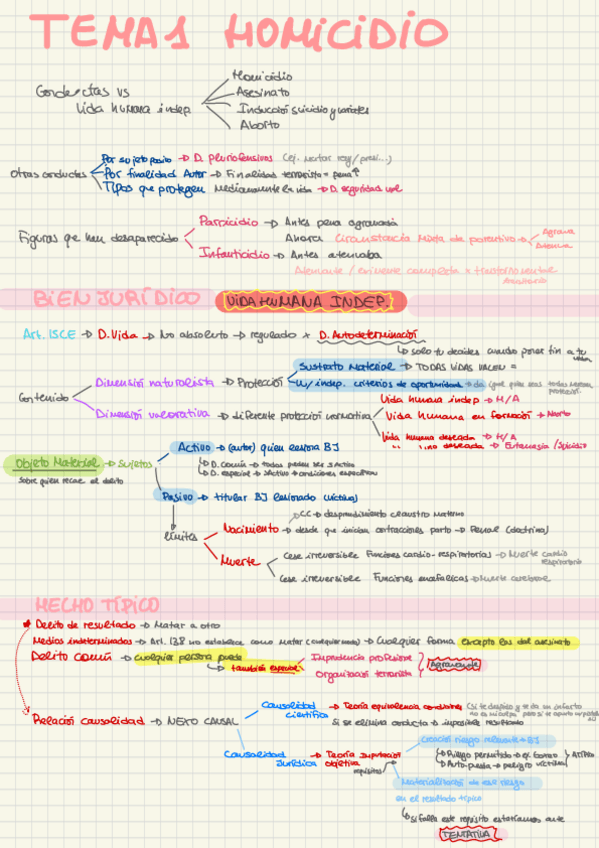 TEMA1 HOMICIDIO
Homicidio
Conductas vs
Asesinato
Vida humana indep.
Inducción suicidio y variales
Aborto
Por sujeto pasivo → D. pluriofensivos (ej. Matar rey/presi...)
Otras conductas
Por finalidad Autor → Finalidad terrorista = pena↑
Tipos que protegen Mediatamente la vida → D. seguridad vial
Parricidio → Antes pena agravada
Figuras qe han desaparecido
Ahora Circunstancia Mixta de parentesco →
Agrava
Atenua
Infanticidio → Antes atenuaba
Atenuante / eximente completa x trastorno mental transitorio
BIEN JURÍDICO VIDA HUMANA INDEP.
Art. 15CE → D. Vida → No absoluto → regulado x D. Autodeterminación
↳ solo tu decides cuando poner fin a tu vida
Sustrato Material → TODAS VIDAS VALEN =
Dimensión naturalista → Protección
w/ indep. criterios de oportunidad
Contenido
Vida humana indep → H/A
Dimensión valorativa → diferente protección normativa
Vida humana en formación → Aborto
Vida humana deseada → H/A
" " no deseada → Eutanasia/Suicidio
Activo → (autor) quien lesiona BJ
Objeto Material → Sujetos
↳ D. común → todos pueden ser S Activo
sobre quien recae el delito
↳ D. especial → S Activo → condiciones específicas
Pasivo → titular BJ lesionado (víctima)
CC → desprendimiento claustro materno
Límites
Nacimiento → desde que inician contracciones parto → Penal (doctrina)
Muerte
Cese irreversible Funciones cardio-respiratorias → Muerte cardio respiratoria
Cese irreversible Funciones encefálicas → Muerte cerebral
HECHO TÍPICO
Delito de resultado → Matar a otro
Medios indeterminados → Art. 138 no establece como matar (cualquier modo) → Cualquier forma excepto las del asesinato
Delito común → Cualquier persona puede
↳ también especial
Imprudencia profesional
Organización terrorista
Agravante
Causalidad científica → Teoría equivalencia condiciones
Relación causalidad → NEXO CAUSAL
Si se elimina conducta → imposible resultado
Causalidad Jurídica → Teoría imputación objetiva
requisitos
Creación riesgo relevante → BJ
↳ Riesgo permitido →
↳ Autopuesta → peligro víctima
Materialización de ese riesgo
en el resultado típico
↳ Si falla este requisito estaríamos ante
TENTATIVA